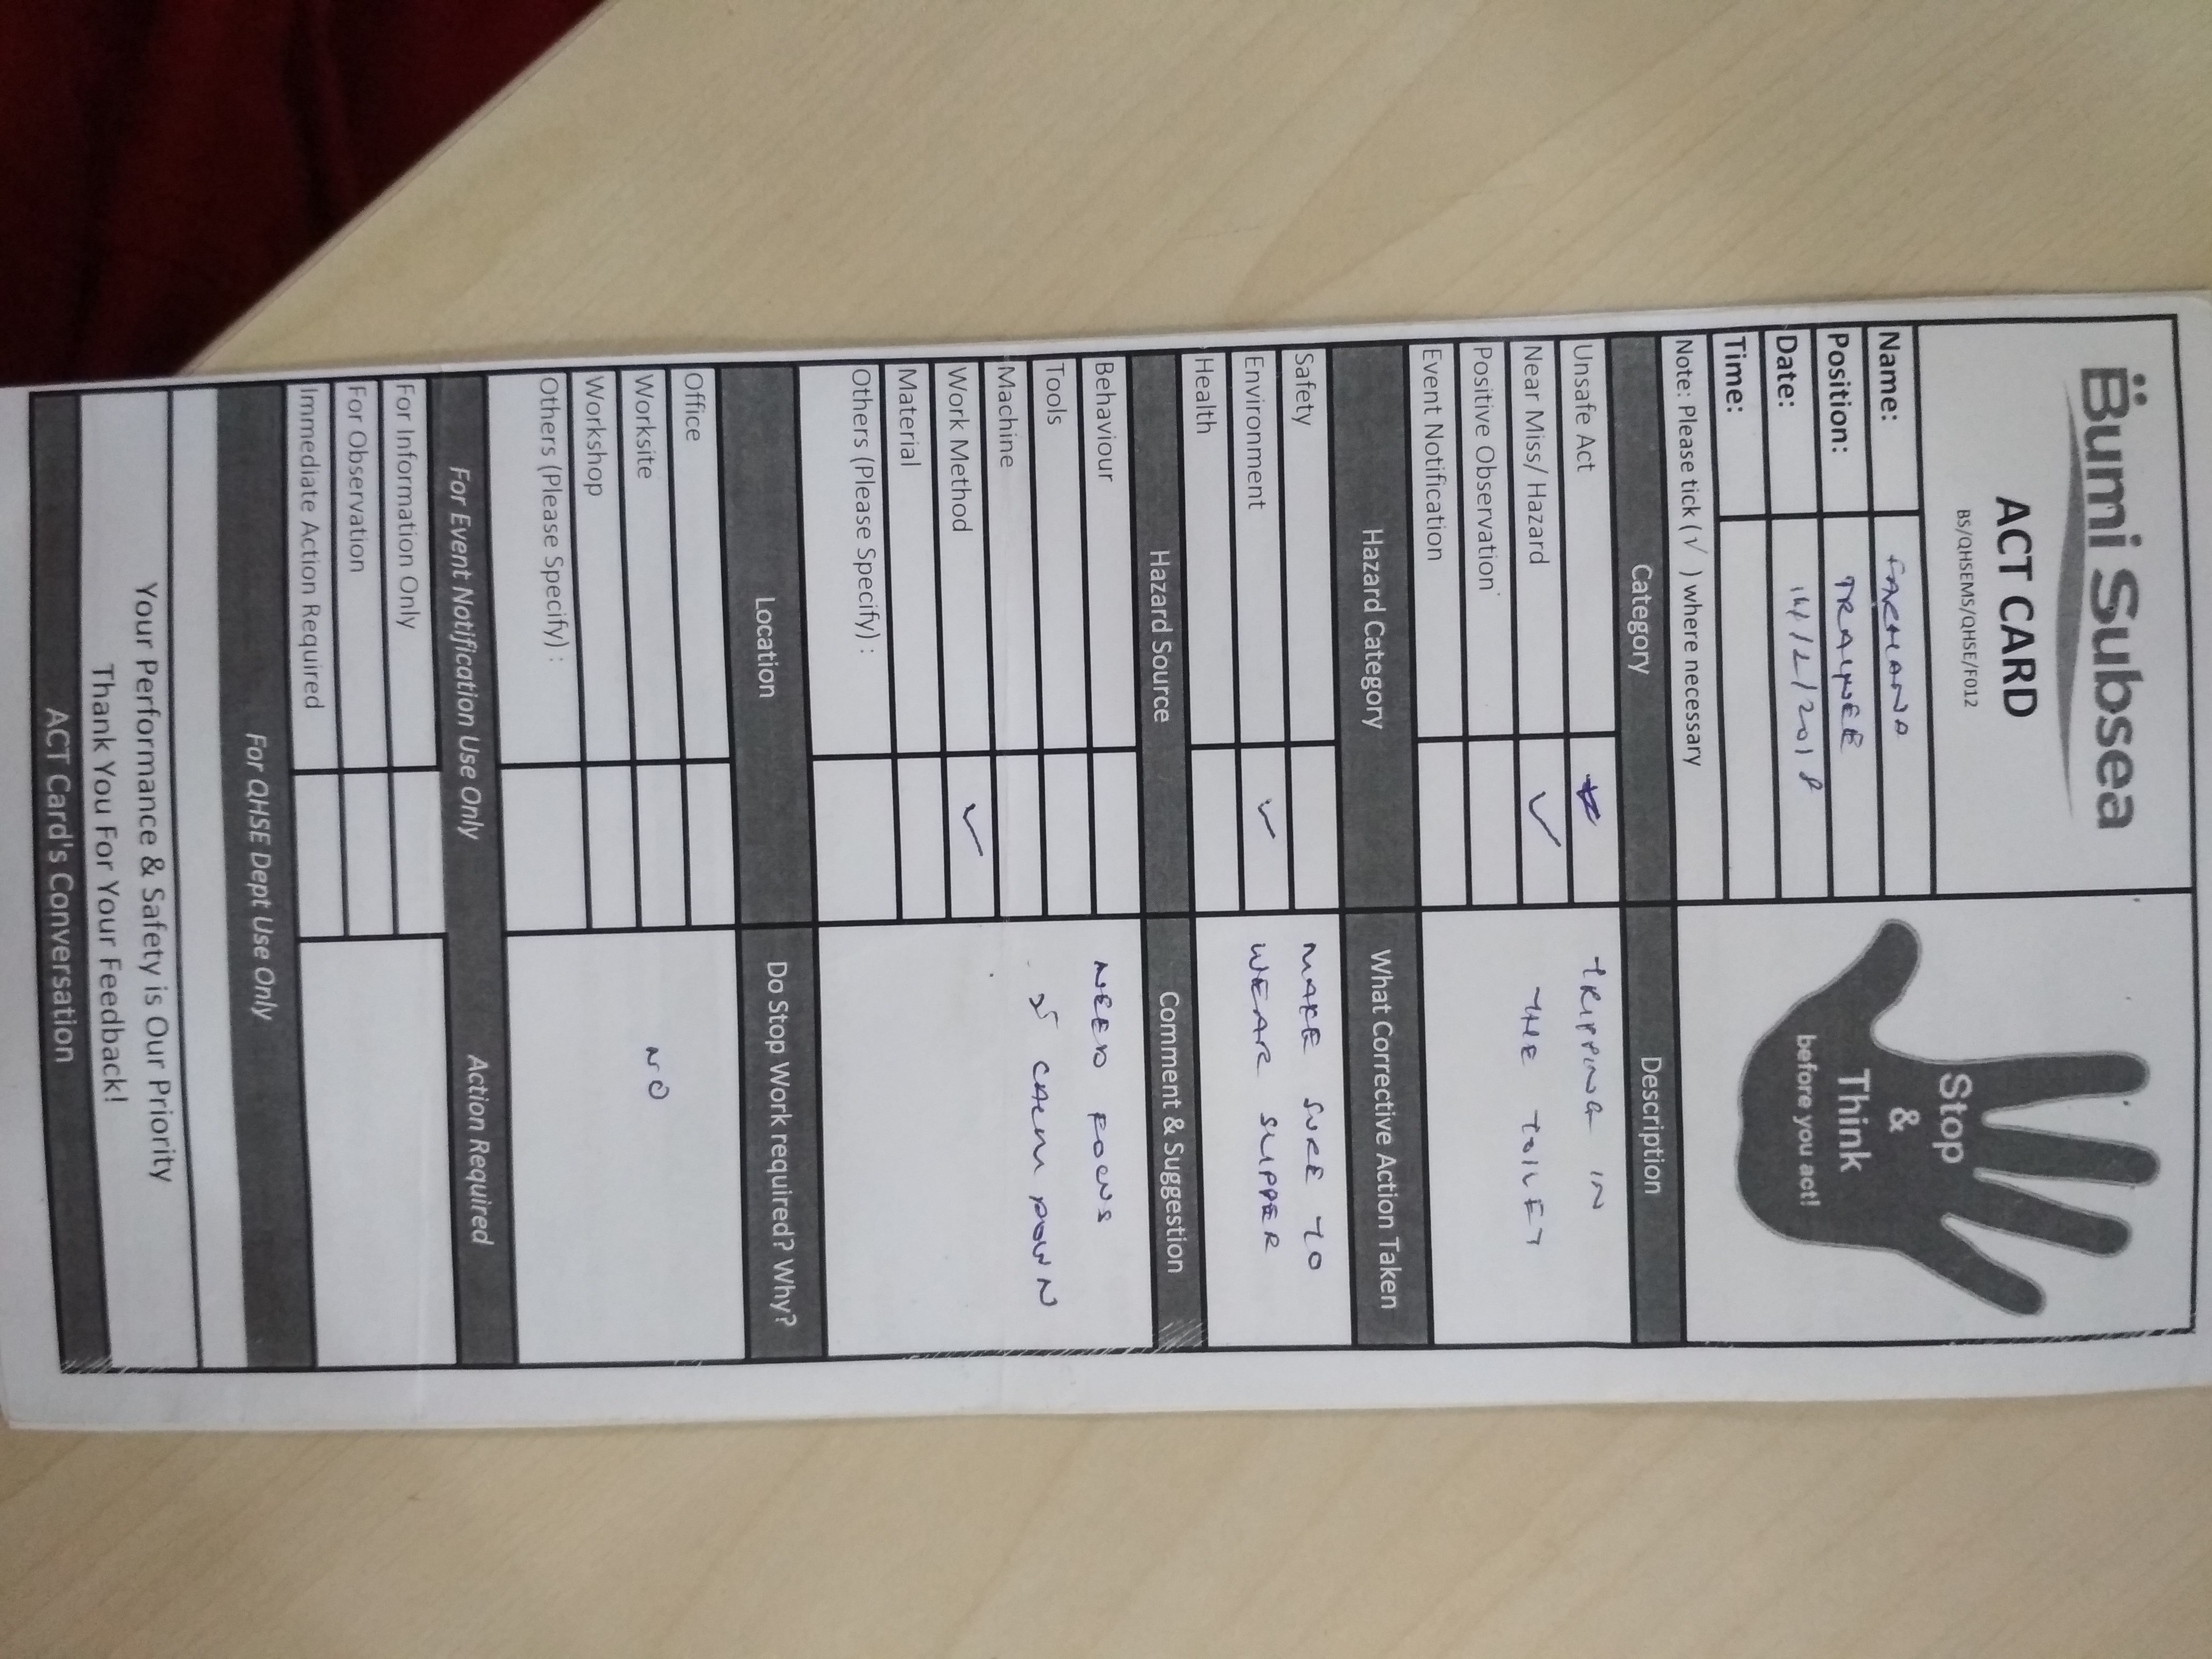 Bumi Subsea
ACT CARD
BS/QHSEMS/QHSE/F012
Stop
&
Think
before you act!
Name: FARHANA
Position: TRAINEE
Date: 14/2/2018
Time:
Note: Please tick (√ ) where necessary
Category Description
Unsafe Act TRIPPING IN
Near Miss/ Hazard ✓ THE TOILET
Positive Observation
Event Notification
Hazard Category What Corrective Action Taken
Safety MAKE SURE TO
Environment ✓ WEAR SLIPPER
Health
Hazard Source Comment & Suggestion
Behaviour NEED FOCUS
Tools & CALM DOWN
Machine
Work Method ✓
Material
Others (Please Specify) :
Location Do Stop Work required? Why?
Office
Worksite NO
Workshop
Others (Please Specify) :
For Event Notification Use Only Action Required
For Information Only
For Observation
Immediate Action Required
For QHSE Dept Use Only
Your Performance & Safety is Our Priority
Thank You For Your Feedback!
ACT Card's Conversation